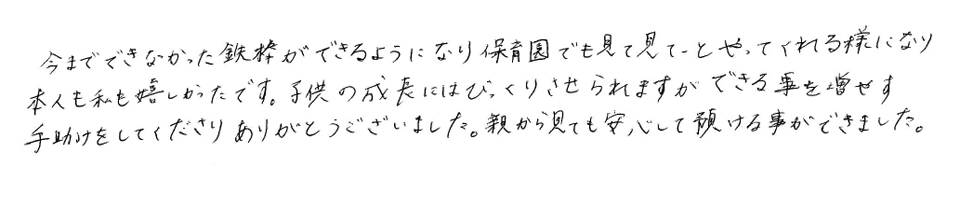 今までできなかった鉄棒ができるようになり保育園でも見て見てーとやってくれる様になり
本人も私も嬉しかったです。子供の成長にはびっくりさせられますができる事を増やす
手助けをしてくださりありがとうございました。親から見ても安心して預ける事ができました。